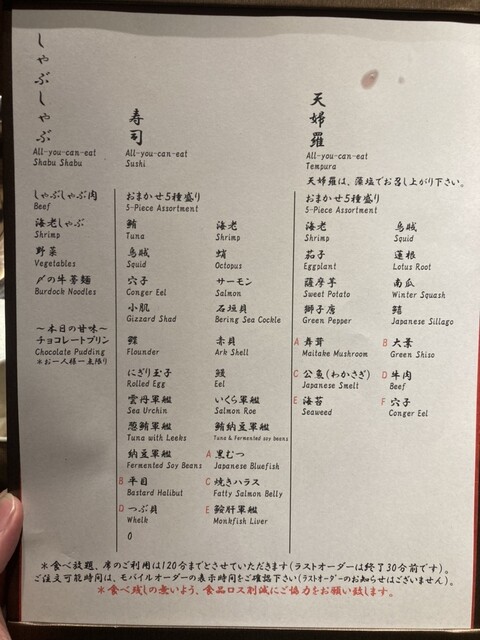 しゃぶしゃぶ
All-you-can-eat
Shabu Shabu
しゃぶしゃぶ肉
Beef
海老しゃぶ
Shrimp
野菜
Vegetables
〆の牛蒡麺
Burdock Noodles
～本日の甘味～
チョコレートプリン
Chocolate Pudding
*お一人様一点限り
寿司
All-you-can-eat
Sushi
おまかせ5種盛り
5-Piece Assortment
鮪
Tuna
海老
Shrimp
烏賊
Squid
蛸
Octopus
穴子
Conger Eel
サーモン
Salmon
小肌
Gizzard Shad
石垣貝
Bering Sea Cockle
鰈
Flounder
赤貝
Ark Shell
にぎり玉子
Rolled Egg
鰻
Eel
雲丹軍艦
Sea Urchin
いくら軍艦
Salmon Roe
葱鮪軍艦
Tuna with Leeks
鮪納豆軍艦
Tuna & Fermented soy beans
納豆軍艦
Fermented Soy Beans
A 黒むつ
Japanese Bluefish
B 平目
Bastard Halibut
C 焼きハラス
Fatty Salmon Belly
D つぶ貝
Whelk
E 鮟肝軍艦
Monkfish Liver
0
天婦羅
All-you-can-eat
Tempura
天婦羅は、藻塩でお召し上がり下さい。
おまかせ5種盛り
5-Piece Assortment
海老
Shrimp
烏賊
Squid
茄子
Eggplant
蓮根
Lotus Root
薩摩芋
Sweet Potato
南瓜
Winter Squash
獅子唐
Green Pepper
鱚
Japanese Sillago
A 舞茸
Maitake Mushroom
B 大葉
Green Shiso
C 公魚(わかさぎ)
Japanese Smelt
D 牛肉
Beef
E 海苔
Seaweed
F 穴子
Conger Eel
*食べ放題、席のご利用は120分までとさせていただきます(ラストオーダーは終了30分前です)。
ご注文可能時間は、モバイルオーダーの表示時間をご確認下さい(ラストオーダーのお知らせはございません)。
*食べ残しの無いよう、食品ロス削減にご協力をお願い致します。